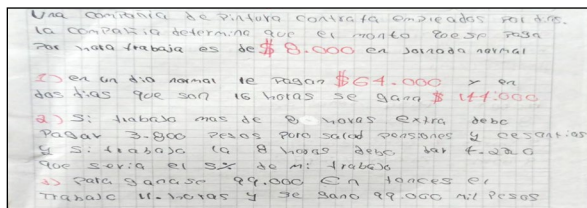 Una compañia de pintura contrata empleados por dias.
La compañia determina que el monto que se paga
por hora trabaja es de $ 8.000 en jornada normal
1) en un dia normal le pagan $64.000 y en
dos dias que son 16 horas se gana $ 144.000
2) Si trabaja mas de 8 horas extra debe
Pagar 3.800 pesos para salod pensiones y cesantias
y si trabaja la 8 horas debe dar 4.220
que seria el 5% de mi trabajo
3) Para ganase 99.000 En tonces el
trabajo 11 horas y se gano 99.000 mil Pesos